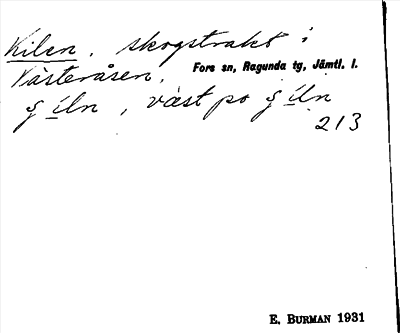 Kilen, skogstrakt i
Västeråsen. Fors sn, Ragunda tg, Jämtl. l.
, väst po
213
E. BURMAN 1931